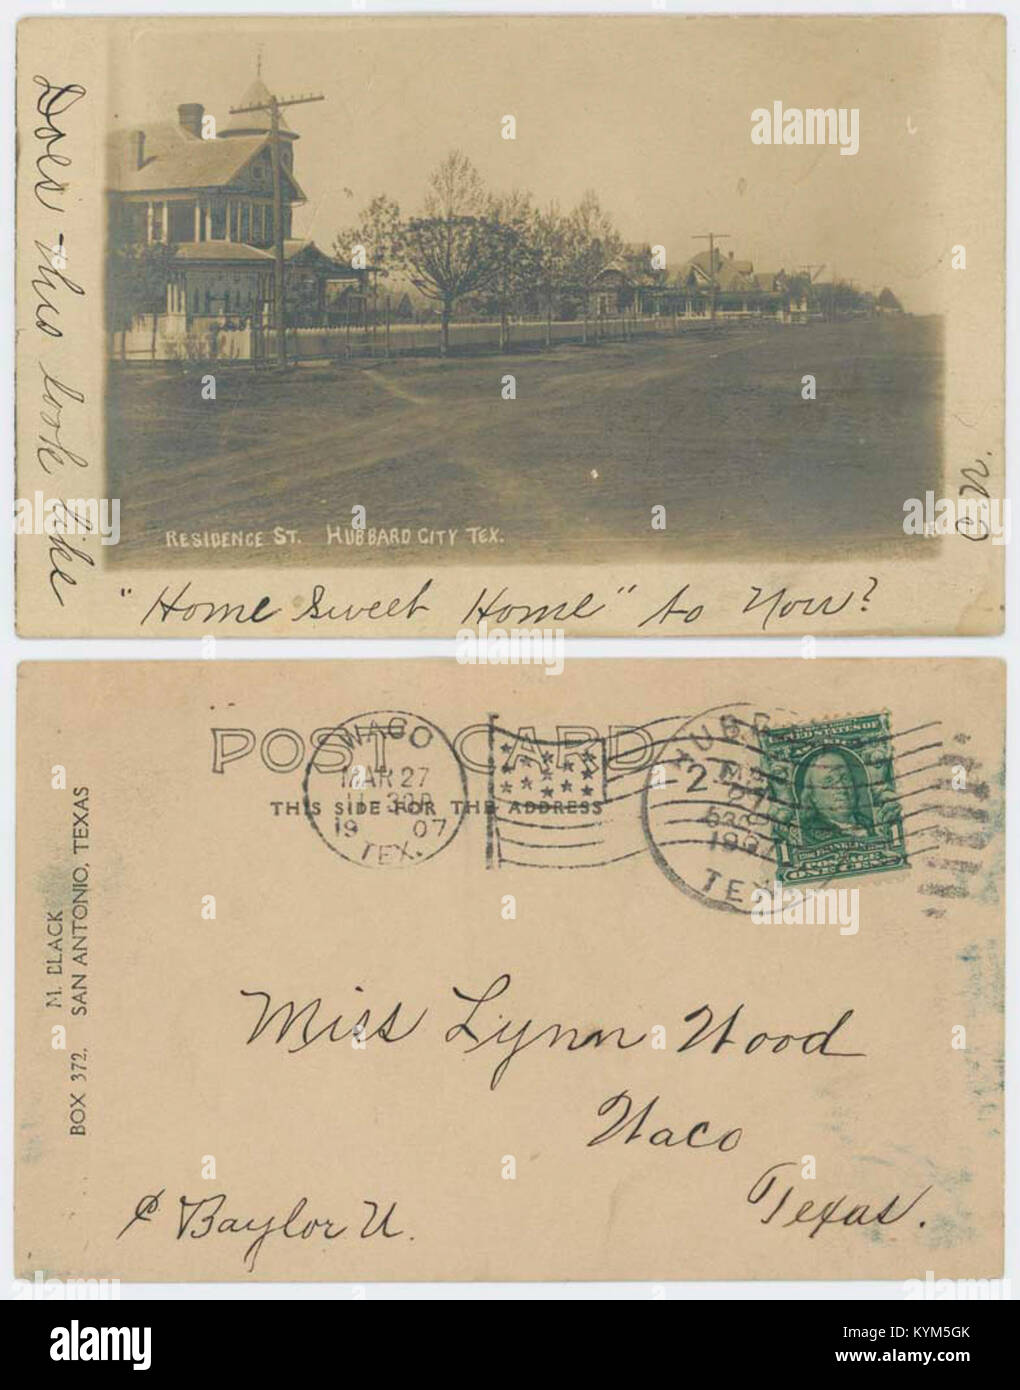 Does this look like
"Home Sweet Home" to You?
C.N.
RESIDENCE ST. HUBBARD CITY TEX.
POST CARD
THIS SIDE FOR THE ADDRESS
WACO
MAR 27
1907
TEX.
2
27
1907
TEX
UNITED STATES OF
FRANKLIN
POSTAGE
ONE CENT
1 1
M. BLACK
BOX 372, SAN ANTONIO, TEXAS
Miss Lynn Wood
Waco
Texas.
¢ Baylor U.
alamy
a alamy
alamy
Image ID: KYM5GK
www.alamy.com